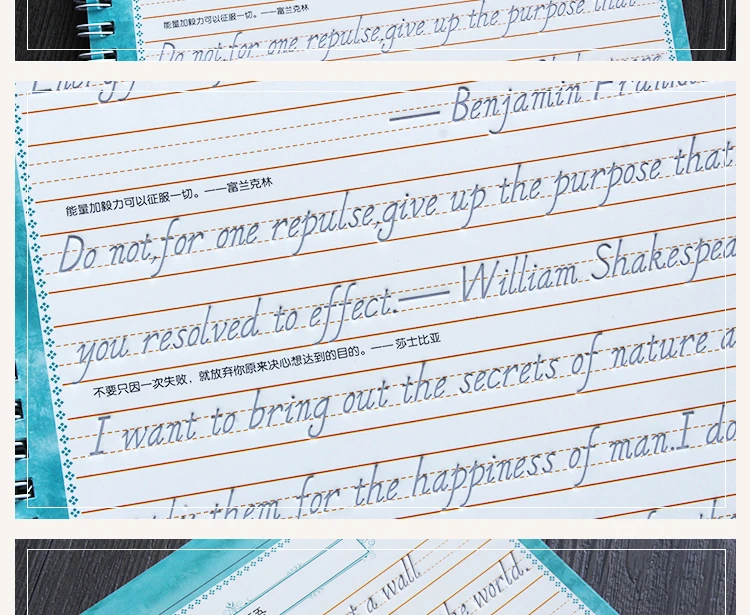 能量加毅力可以征服一切。——富兰克林
Do not,for one repulse,give up the purpose that
Energy
— Benjamin Franklin
能量加毅力可以征服一切。——富兰克林
Do not,for one repulse,give up the purpose that
you resolved to effect.— William Shakespea
不要只因一次失败，就放弃你原来决心想达到的目的。—— 莎士比亚
I want to bring out the secrets of nature a
them for the happiness of man.I do
a wall.
the world.